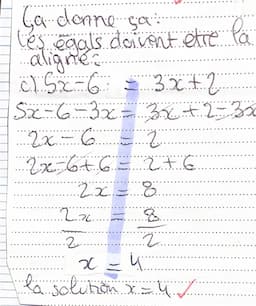 Ça donne ça:
les égals doivent etre la
aligné:
c) 5x-6 = 3x+2
5x-6-3x = 3x+2-3x
2x-6 = 2
2x-6+6 = 2+6
2x = 8
2x/2 = 8/2
x = 4
la solution x=4 ✓